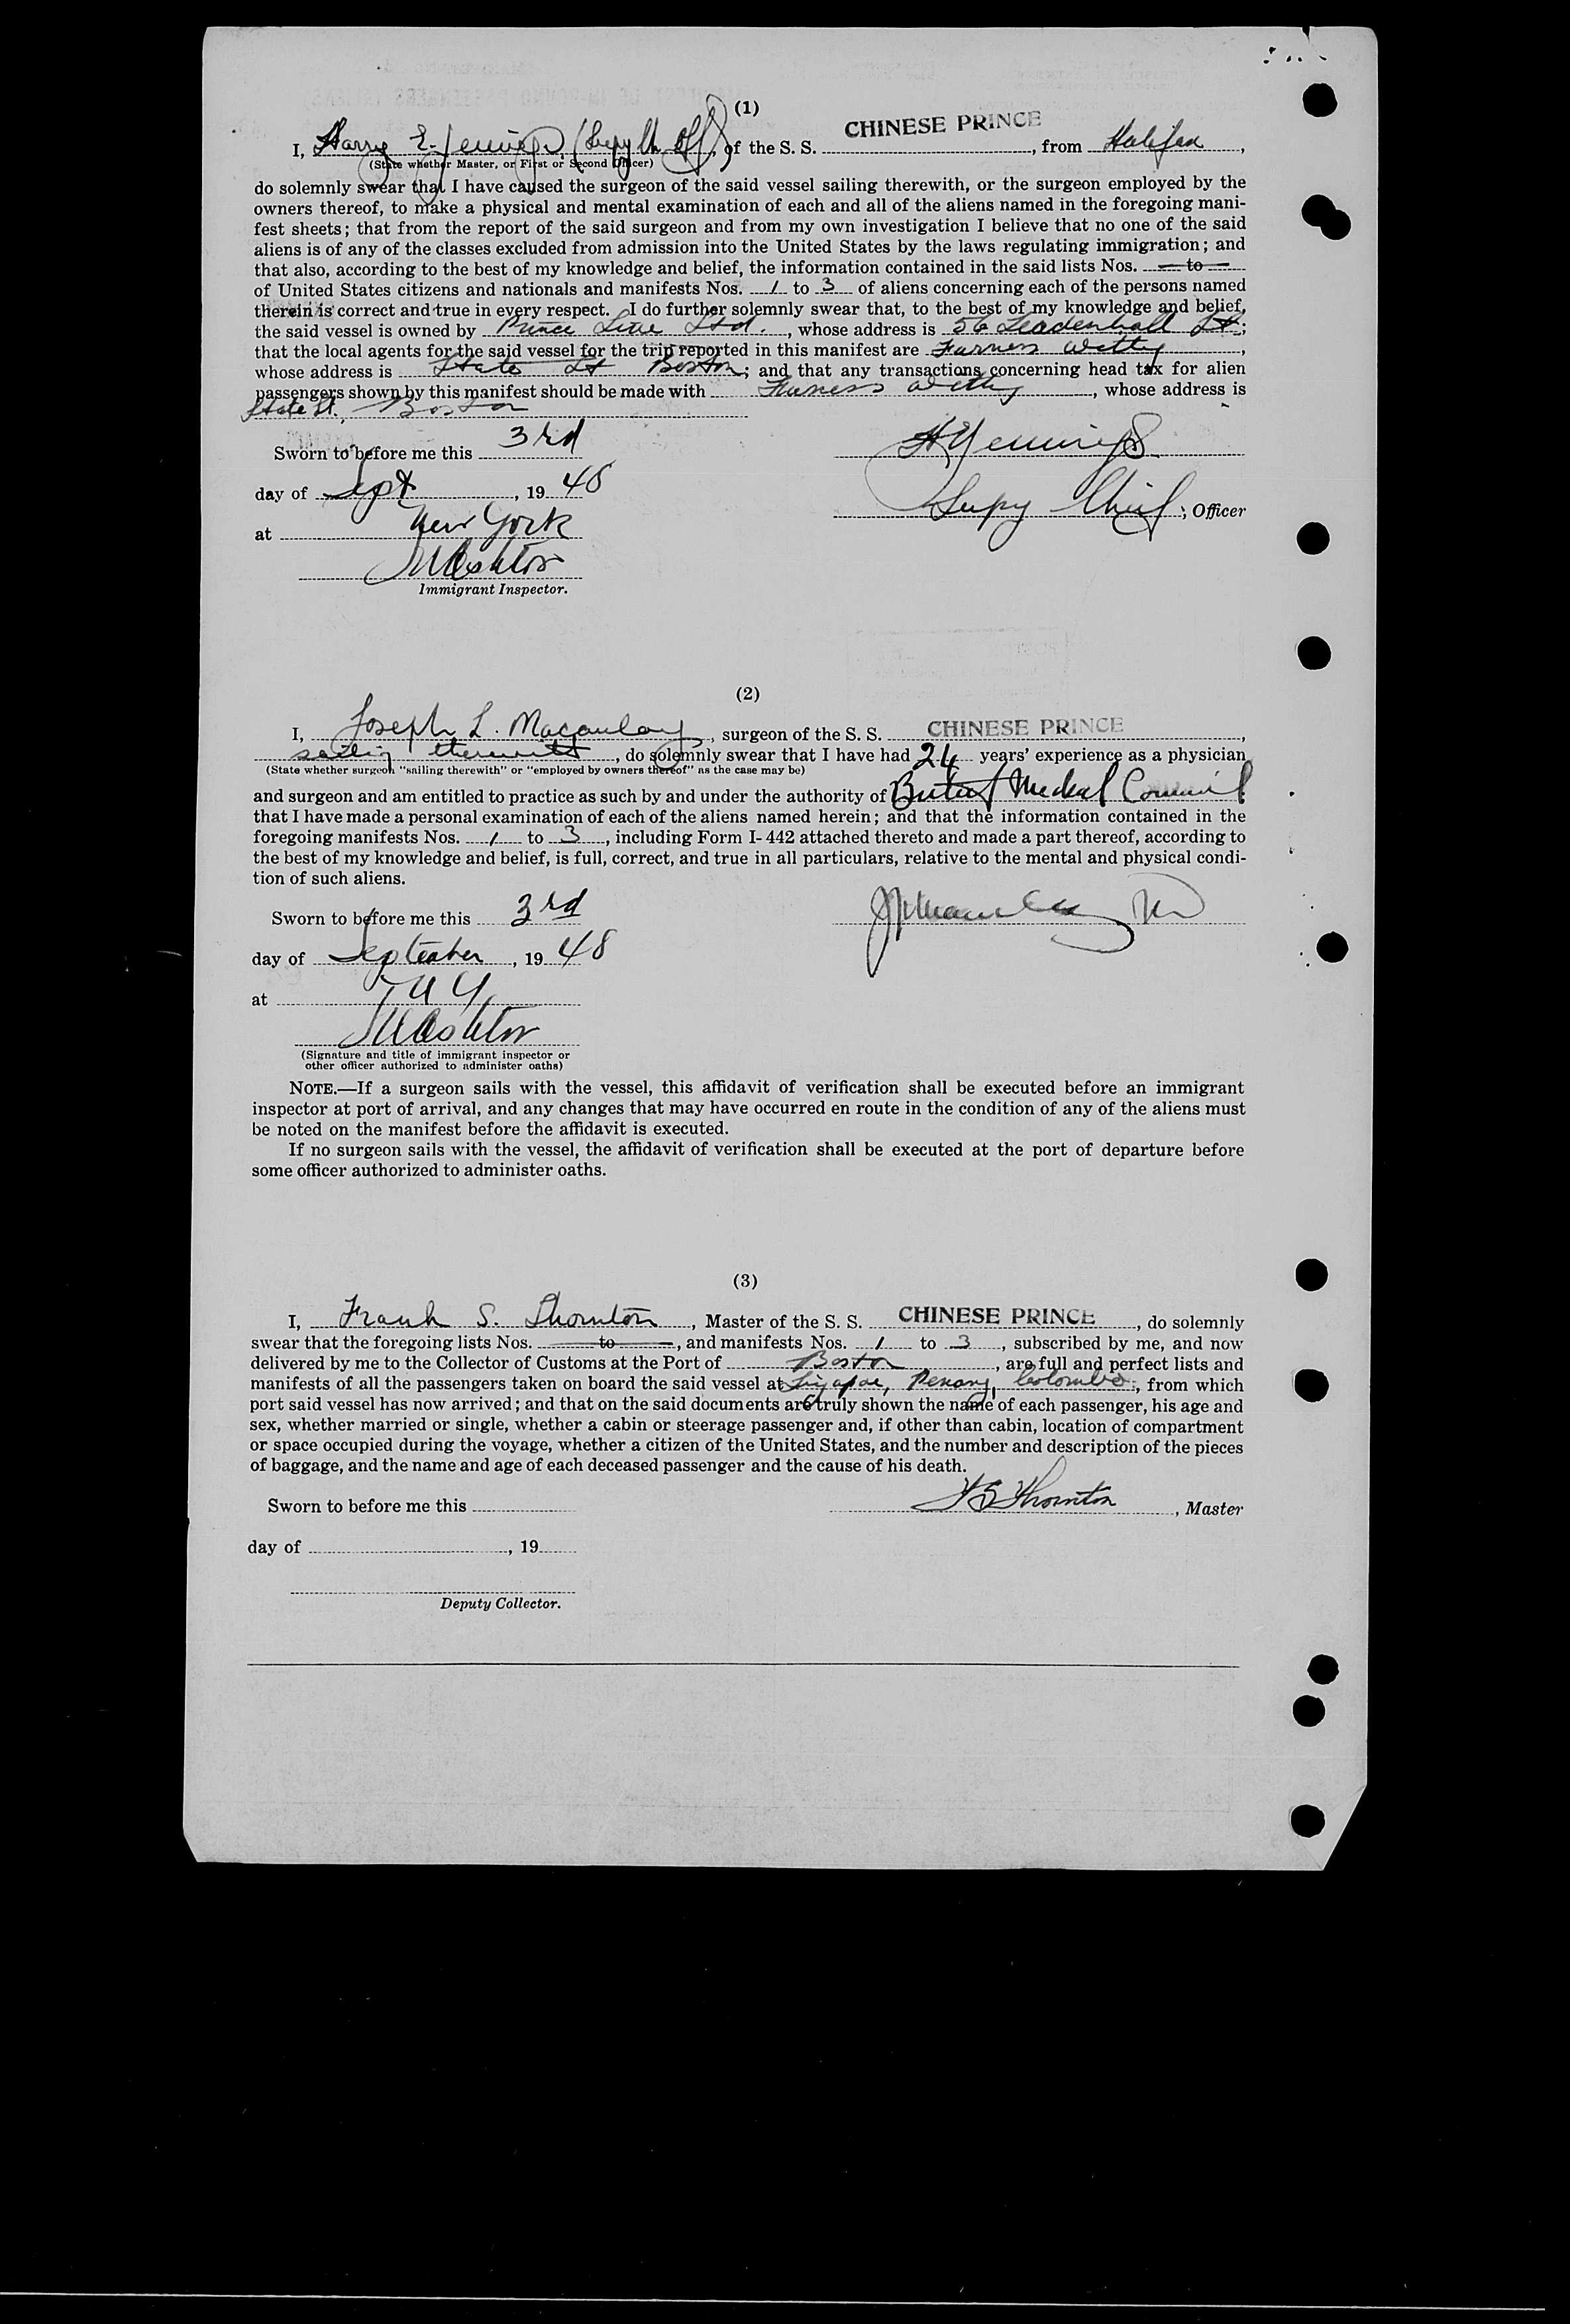 (1)
I, Harry E. Jennings, (Supy Ch. Off), of the S. S. CHINESE PRINCE, from Halifax,
(State whether Master, or First or Second Officer)
do solemnly swear that I have caused the surgeon of the said vessel sailing therewith, or the surgeon employed by the
owners thereof, to make a physical and mental examination of each and all of the aliens named in the foregoing mani-
fest sheets; that from the report of the said surgeon and from my own investigation I believe that no one of the said
aliens is of any of the classes excluded from admission into the United States by the laws regulating immigration; and
that also, according to the best of my knowledge and belief, the information contained in the said lists Nos. — to —
of United States citizens and nationals and manifests Nos. 1 to 3 of aliens concerning each of the persons named
therein is correct and true in every respect. I do further solemnly swear that, to the best of my knowledge and belief,
the said vessel is owned by Prince Line Ltd., whose address is 56 Leadenhall St;
that the local agents for the said vessel for the trip reported in this manifest are Furness Withy,
whose address is State St Boston; and that any transactions concerning head tax for alien
passengers shown by this manifest should be made with Furness Withy, whose address is
State St. Boston
Sworn to before me this 3rd
H Jennings
day of Sept, 19 48
Supy Chief, Officer
at New York
Immigrant Inspector.
(2)
I, Joseph L. Macaulay, surgeon of the S. S. CHINESE PRINCE,
sailing therewith, do solemnly swear that I have had 24 years' experience as a physician
(State whether surgeon "sailing therewith" or "employed by owners thereof" as the case may be)
and surgeon and am entitled to practice as such by and under the authority of British Medical Council
that I have made a personal examination of each of the aliens named herein; and that the information contained in the
foregoing manifests Nos. 1 to 3, including Form I-442 attached thereto and made a part thereof, according to
the best of my knowledge and belief, is full, correct, and true in all particulars, relative to the mental and physical condi-
tion of such aliens.
Sworn to before me this 3rd
day of September, 19 48
at N Y
(Signature and title of immigrant inspector or
other officer authorized to administer oaths)
NOTE.—If a surgeon sails with the vessel, this affidavit of verification shall be executed before an immigrant
inspector at port of arrival, and any changes that may have occurred en route in the condition of any of the aliens must
be noted on the manifest before the affidavit is executed.
If no surgeon sails with the vessel, the affidavit of verification shall be executed at the port of departure before
some officer authorized to administer oaths.
(3)
I, Frank S. Thornton, Master of the S. S. CHINESE PRINCE, do solemnly
swear that the foregoing lists Nos. — to —, and manifests Nos. 1 to 3, subscribed by me, and now
delivered by me to the Collector of Customs at the Port of Boston, are full and perfect lists and
manifests of all the passengers taken on board the said vessel at Singapore, Penang, Colombo, from which
port said vessel has now arrived; and that on the said documents are truly shown the name of each passenger, his age and
sex, whether married or single, whether a cabin or steerage passenger and, if other than cabin, location of compartment
or space occupied during the voyage, whether a citizen of the United States, and the number and description of the pieces
of baggage, and the name and age of each deceased passenger and the cause of his death.
Sworn to before me this
F S Thornton, Master
day of , 19
Deputy Collector.